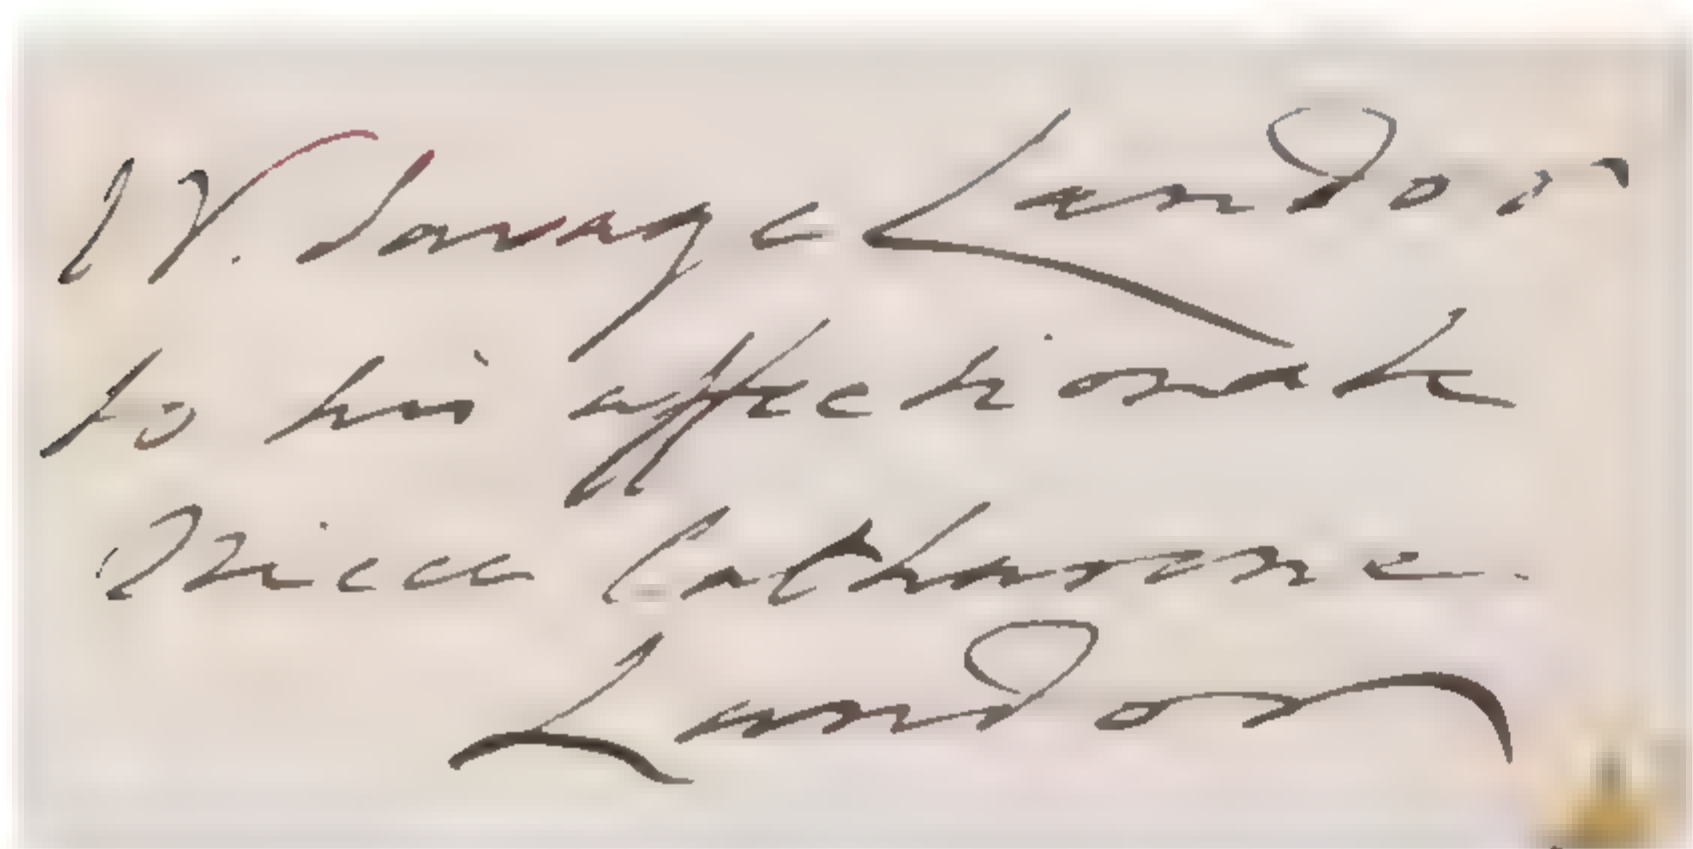 W. Savage Landor
to his affectionate
Niece Catharine.
Landor